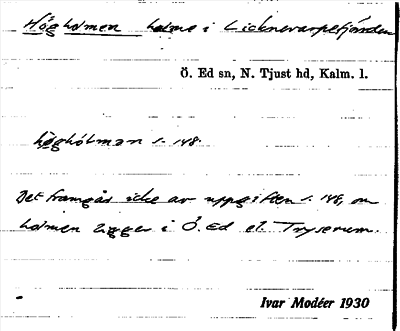 Högholmen holme i Licknevarpefjärden
Ö. Ed sn, N. Tjust hd, Kalm. l.
högholman s. 148.
Det framgår icke av uppgiften s. 148, om
holmen ligger i Ö. Ed el. Tryserum.
Ivar Modéer 1930